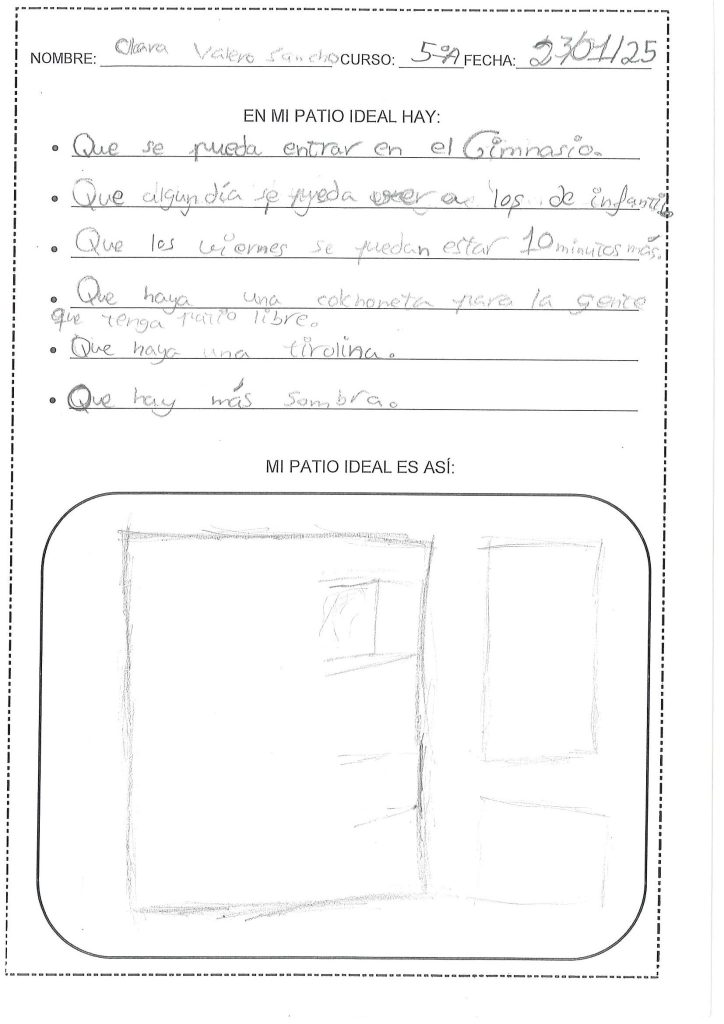 NOMBRE: Valero Sancho CURSO: 5ºA FECHA: 23/01/25
EN MI PATIO IDEAL HAY:
• Que se pueda entrar en el Gimnasio.
• Que algun día se pueda ver a los de infantil.
• Que los viernes se puedan estar 10 minutos más.
• Que haya una colchoneta para la gente
que tenga patio libre.
• Que haya una tirolina.
• Que hay más sombra.
MI PATIO IDEAL ES ASÍ: